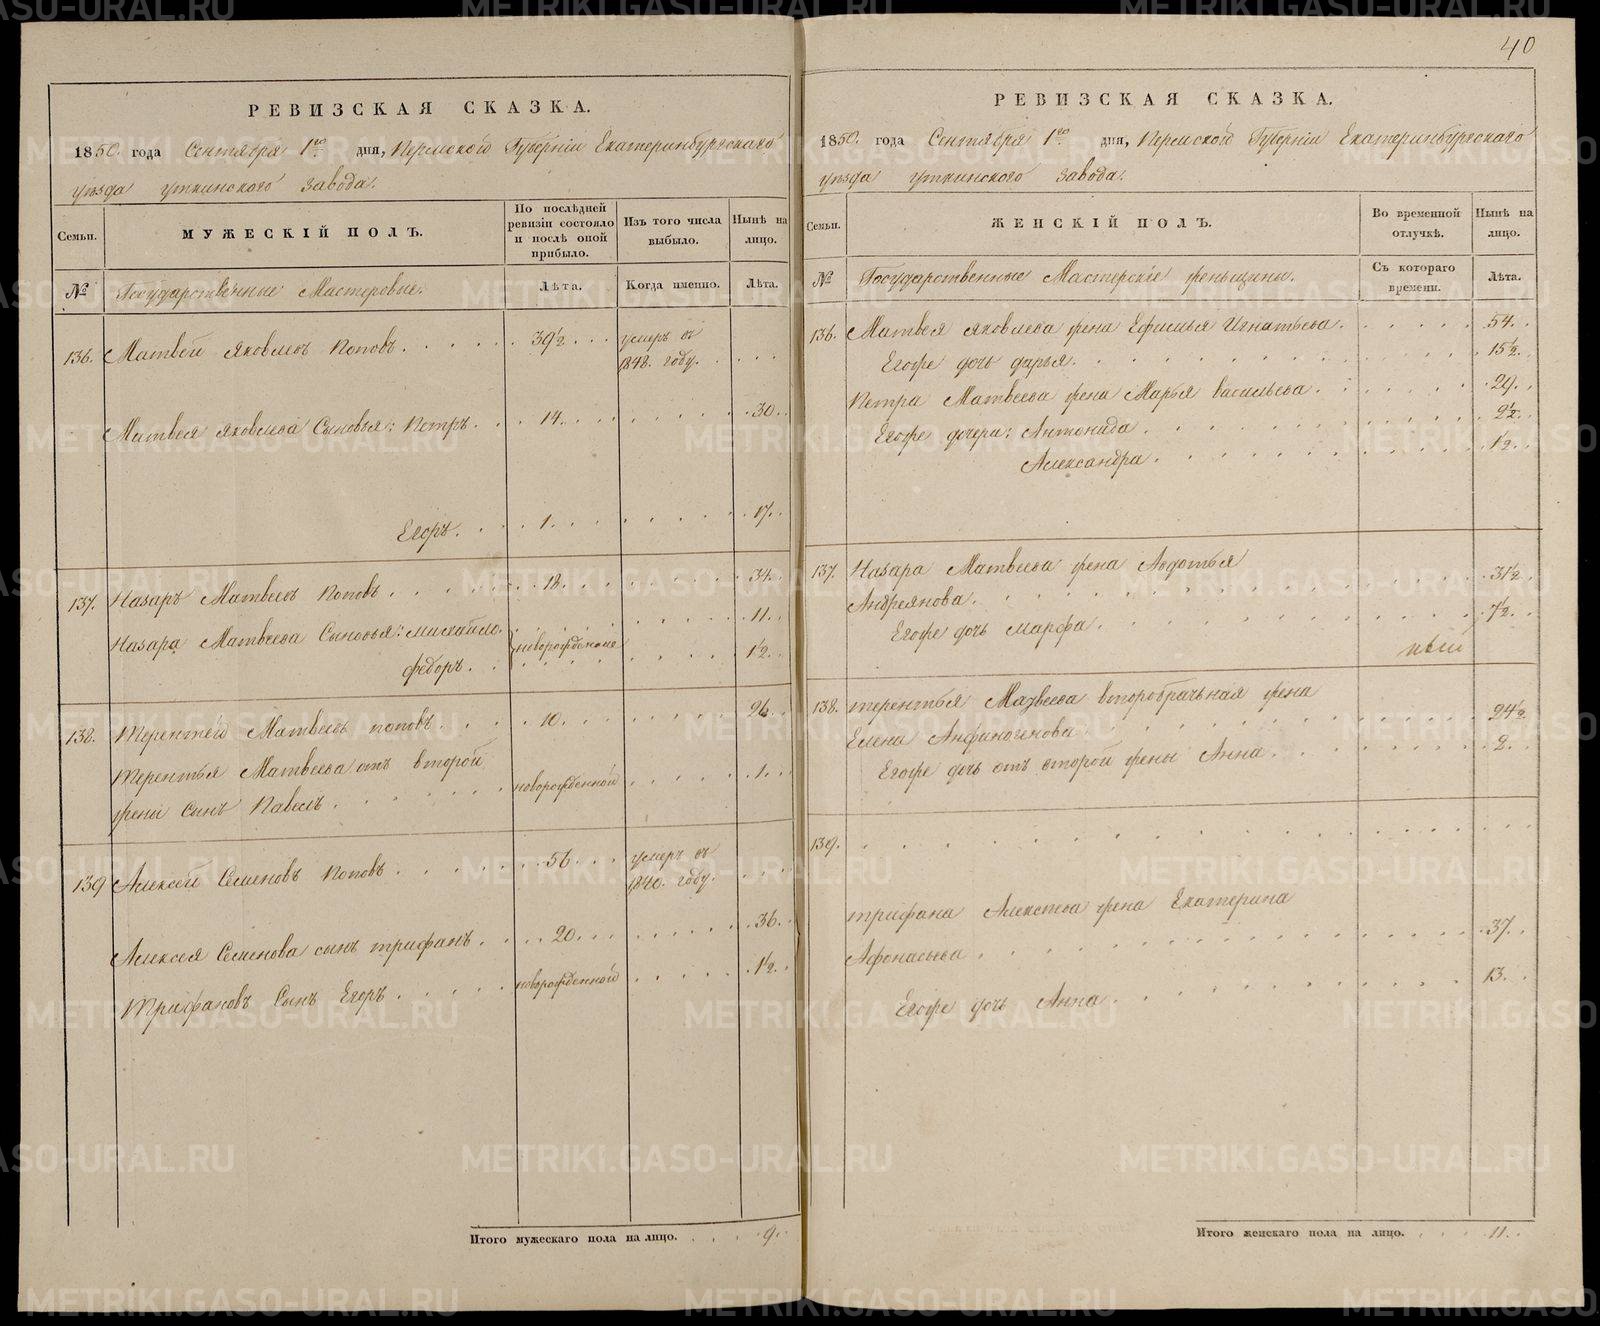 40
РЕВИЗСКАЯ СКАЗКА.
1850. года Сентября 1го дня, Пермской Губернiи Екатеринбургскаго
уѣзда уткинского завода.
Семьи. МУЖЕСКIЙ ПОЛЪ. По послѣдней ревизiи состояло и послѣ оной прибыло. Изъ того числа выбыло. Нынѣ на лицо.
№ Государственные Мастеровые. Лѣта. Когда именно. Лѣта.
136. Матвей Яковлевъ Поповъ. 39½ умеръ въ 1848. году.
Матвея Яковлева Сыновья: Петръ. 14. 30.
Егоръ. 1. 17.
137. Назаръ Матвеевъ Поповъ 18. 34.
Назара Матвеева Сыновья: михайло. новорожденные 11.
федоръ. 1½.
138. Терентей Матвеевъ поповъ. 10. 26.
Терентья Матвеева отъ второй
жены сынъ Павелъ. новорожденной 1.
139 Алексей Семеновъ Поповъ 56. умеръ въ 1840. году.
Алексея Семенова сынъ трифанъ. 20. 36.
Трифановъ Сынъ Егоръ. новорожденной 1½.
Итого мужескаго пола на лицо. 9.
РЕВИЗСКАЯ СКАЗКА.
1850. года Сентября 1го дня, Пермской Губернiи Екатеринбургскаго
уѣзда уткинского завода.
Семьи. ЖЕНСКIЙ ПОЛЪ. Во временной отлучкѣ. Нынѣ на лицо.
№ Государственные Мастерскiе женщины. Съ котораго времени. Лѣта.
136. Матвея Яковлева жена Ефимья Игнатьева. 54.
Егоже дочь дарья. 15½.
Петра Матвеева жена Марья васильева. 29.
Егоже дочери: Антонида 2½.
Александра. ½.
137. Назара Матвеева жена Авдотья
Андреянова. 31½.
Егоже дочь марфа. 7½.
138. терентья Матвеева второбрачьная жена
Елена Анфиногинова 24½
Егоже дочь отъ второй жены Анна 2.
139.
трифана Алексеева жена Екатерина
Афонасьева 37.
Егоже дочь Анна 13.
Итого женскаго пола на лицо. 11.
METRIKI.GASO-URAL.RU